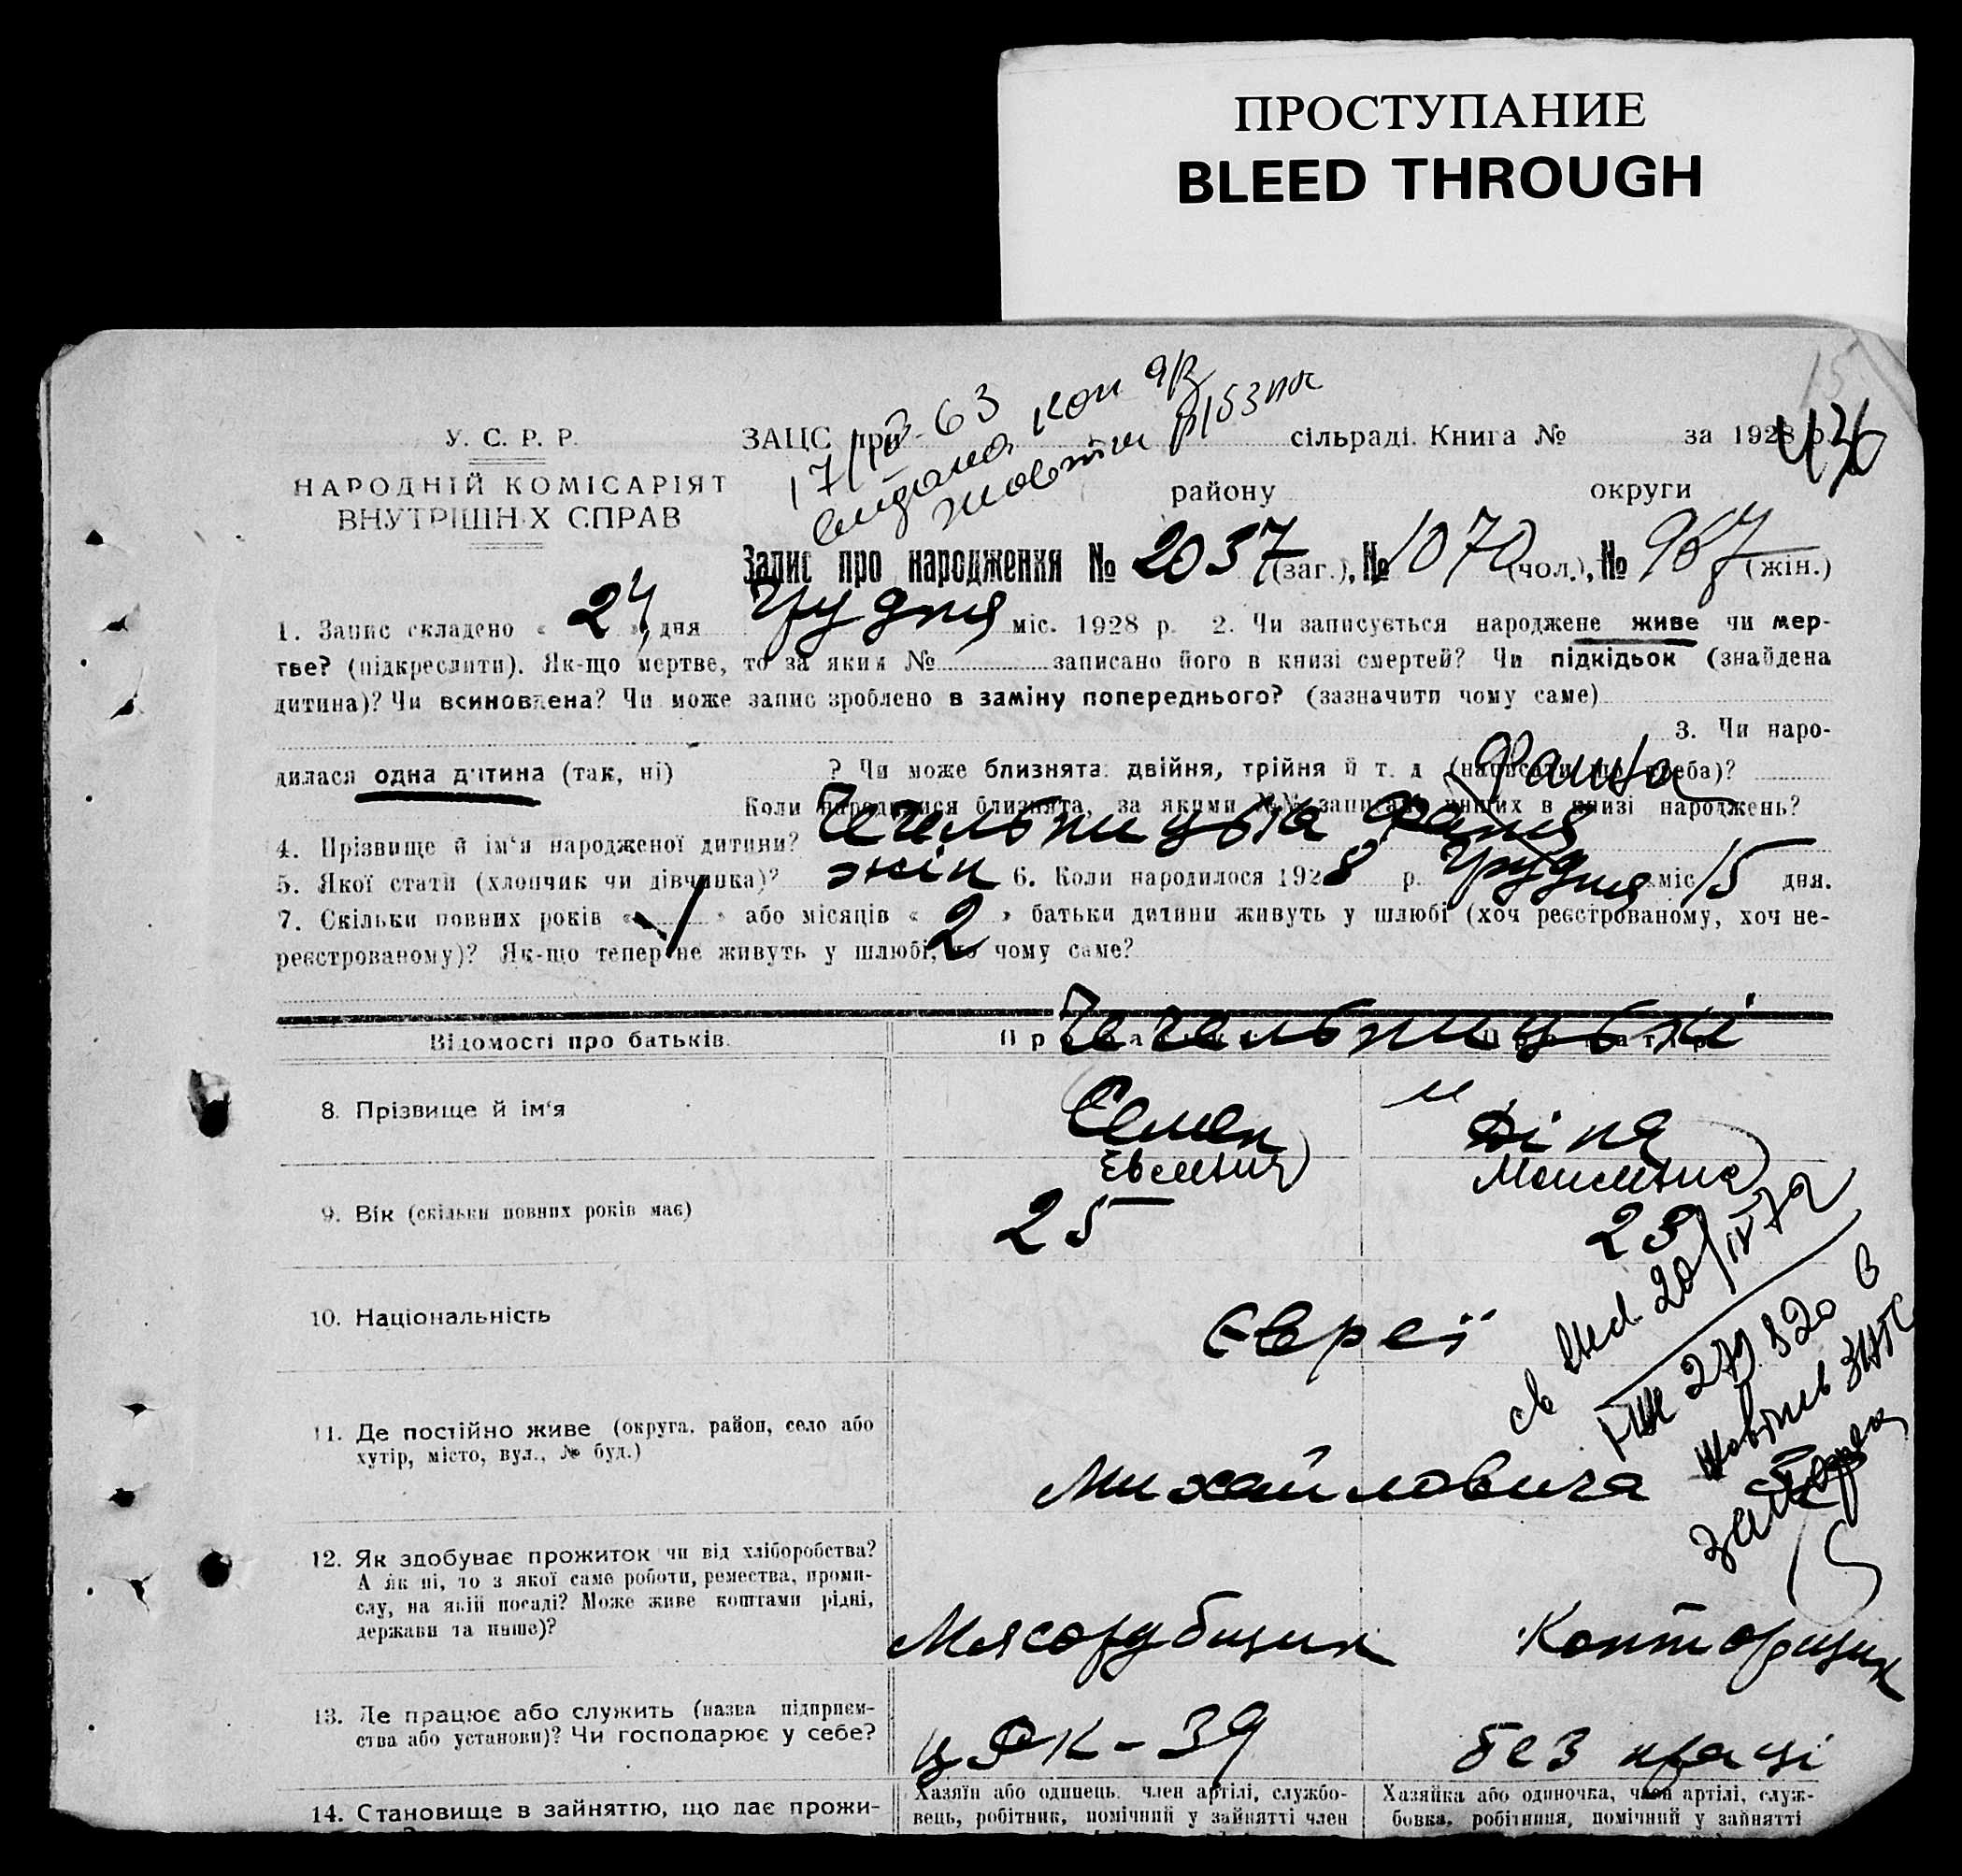 ПРОСТУПАНИЕ
BLEED THROUGH
У. С. Р. Р.
НАРОДНІЙ КОМІСАРІЯТ
ВНУТРІШНІХ СПРАВ
ЗАЦС при сільраді. Книга № за 1928 р.
району округи
Запис про народження № 2037 (заг.), № 1070 (чол.), № 967 (жін.)
1. Запис складено « 24 » дня Грудня міс. 1928 р. 2. Чи записується народжене живе чи мер-
тве? (підкреслити). Як-що мертве, то за яким № записано його в книзі смертей? Чи підкідьок (знайдена
дитина)? Чи всиновлена? Чи може запис зроблено в заміну попереднього? (зазначити чому саме)
3. Чи наро-
дилася одна дитина (так, ні) ? Чи може близнята: двійня, трійня й т. д. (написати що треба)?
Фаина
Коли народилися близнята, за якими №№ записано инших в книзі народжень?
4. Прізвище й ім'я народженої дитини? Чечельницька Фаня
5. Якої стати (хлопчик чи дівчинка)? жін 6. Коли народилося 1928 р. Грудня міс 15 дня.
7. Скільки повних років « » або місяців « 2 » батьки дитини живуть у шлюбі (хоч реєстрованому, хоч не-
реєстрованому)? Як-що тепер не живуть у шлюбі, то чому саме?
Чечельницькі
Відомості про батьків.
8. Прізвище й ім'я Семен Діна
9. Вік (скільки повних років має) 25 23
10. Національність Євреї
11. Де постійно живе (округа, район, село або
хутір, місто, вул., № буд.) Михайловича
12. Як здобуває прожиток чи від хліборобства?
А як ні, то з якої саме роботи, ремества, проми-
слу, на якій посаді? Може живе коштами рідні,
держави та инше)? Мясорубщик Конторщик
13. Де працює або служить (назва підприєм-
ства або установи)? Чи господарює у себе? ЦРК - 39 без праці
14. Становище в зайняттю, що дає прожи-
Хазяїн або одинець, член артілі, службо-
вець, робітник, помічний у зайнятті член
Хазяйка або одиночка, член артілі, служ-
бовка, робітниця, помічний у зайнятті